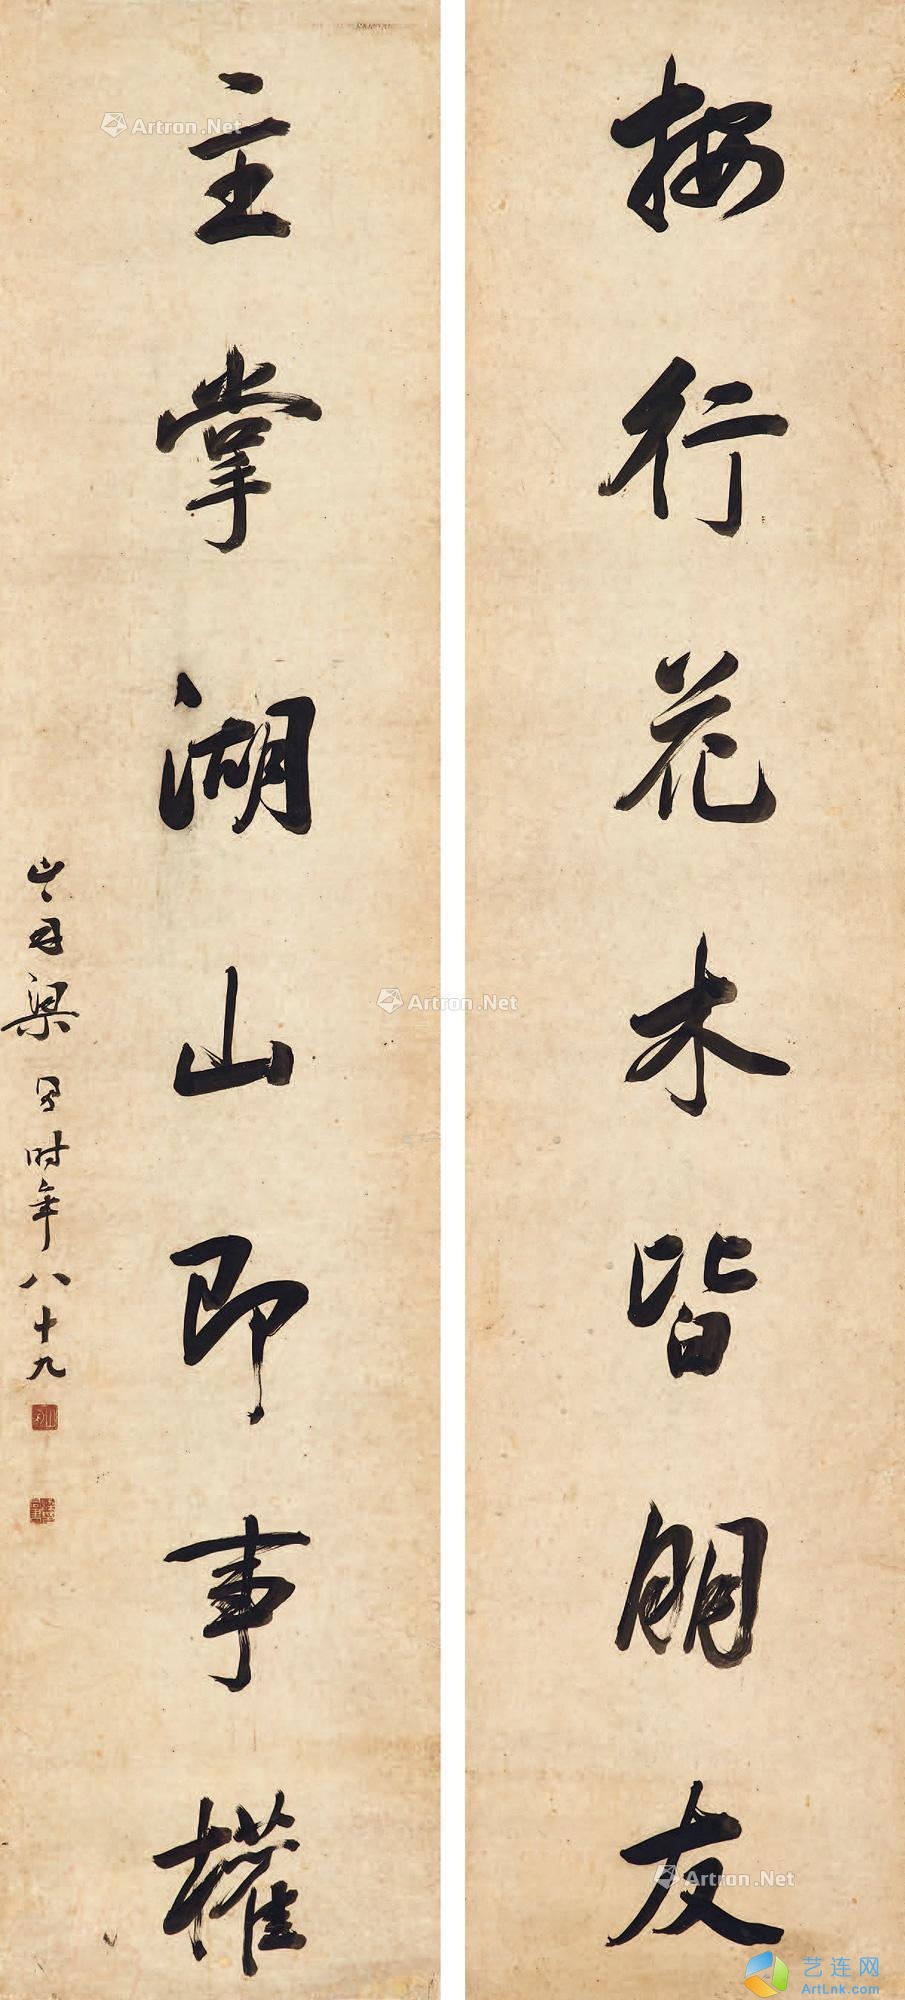 按行花木皆朋友
主掌湖山即事权
山舟梁同书时年八十九
Artron.Net
Artron.Net
Artron.Net
艺连网
ArtLnk.com